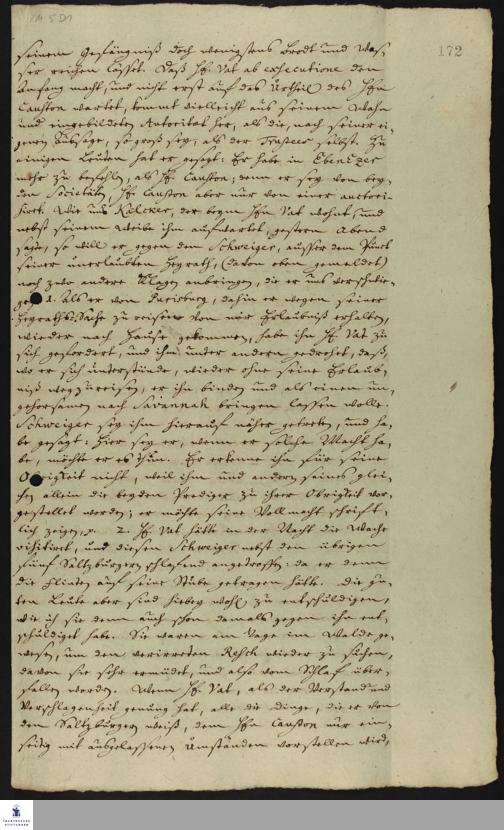 172
seinem Gefängniß doch wenigstens Brodt und Was-
ser reichen lässet. Daß H. Vat ab executione den
Anfang macht, und nicht erst auf das Urtheil des Hn
Causton wartet, kommt vielleicht aus seinem Wahn
und eingebildeten Autoritat her, als die, nach seiner ei-
genen Aussage, so groß sey, als der Trustees selbst. Zu
einigen Leuten hat er gesagt: Er habe in Ebenezer
mehr zu befehlen, als H. Causton; denn er sey von bey-
den Societäten, H. Causton aber nur von einer auctori-
sirt. Wie uns Kikcker, der beym Hn Vat wohnt, und
nebst seinem Weibe ihm aufwartet, gestern Abend
sagte, so will er gegen den Schweiger, ausser dem Punct
seiner unerlaubten Heyrath, (davon oben gemeldet)
noch zwo andere Klagen anbringen, die er uns verschwie-
gen. 1. Als er von Purisburg, dahin er wegen seiner
Heyraths-Sache zu reisen von mir Erlaubniß erhalten,
wieder nach Hause gekommen, habe ihn H. Vat zu
sich gefordert, und ihm unter andern gedrohet, daß,
wo er sich unterstünde, wieder ohne seine Erlaub-
niß wegzureisen, er ihn binden und als einen un-
gehorsamen nach Savannah bringen lassen wolle.
Schweiger sey ihm hierauf näher getreten, und ha-
be gesagt: Hier sey er, wenn er solche Macht ha-
be, möchte er es thun. Er erkenne ihn für seine
Obrigkeit nicht, weil ihm und andern seines glei-
chen allein die beyden Prediger zu ihrer Obrigkeit vor-
gestellet worden; er möchte seine Vollmacht schrift-
lich zeigen, p. 2. H. Vat hätte in der Nacht die Wache
visitiret, und diesen Schweiger nebst den übrigen
fünf Saltzburgern schlafend angetroffen: da er denn
die Flinten auf seine Stube getragen hätte. Die gu-
ten Leute aber sind hiebey wohl zu entschuldigen,
wie ich sie denn auch schon damals gegen ihn ent-
schuldiget habe. Sie waren am Tage im Walde ge-
wesen, um den verirreten Resch wieder zu suchen,
davon sie sehr ermüdet, und also vom Schlaf über-
fallen worden. Wenn H. Vat, als der Verstand und
Verschlagenheit genung hat, alle die Dinge, die er von
den Saltzburgern weiß, dem Hn Causton nur ein-
seitig mit ausgelassenen Umständen vorstellen wird,
FRANCKESCHE
STIFTUNGEN